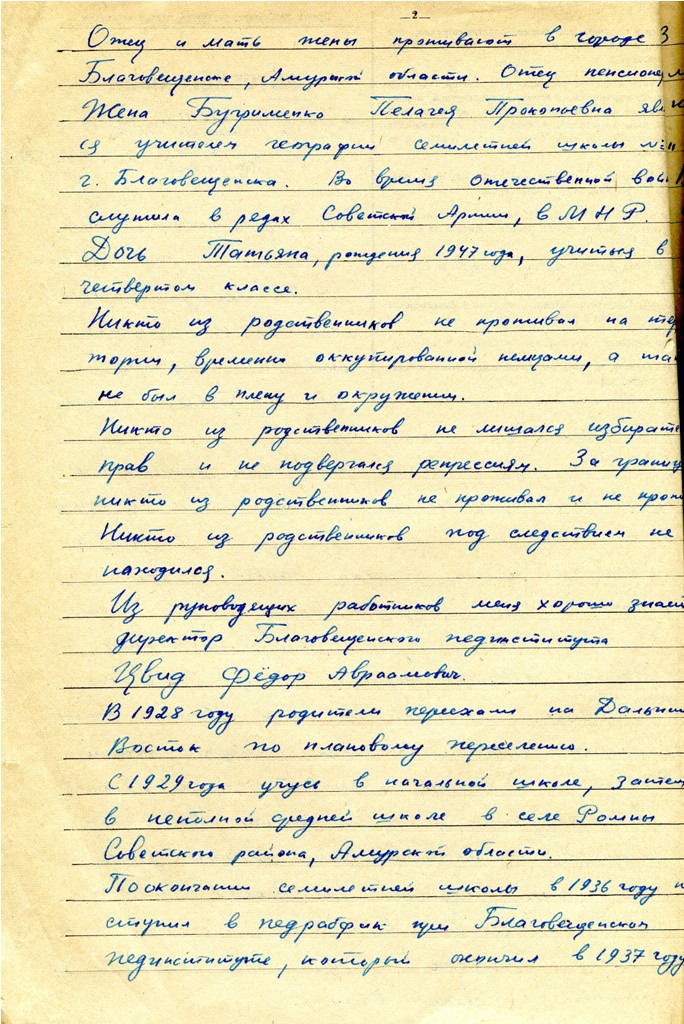 — 2 —
Отец и мать жены проживают в городе
Благовещенске, Амурской области. Отец пенсионер
Жена Бугрименко Пелагея Прокопьевна явл
ся учителем географии семилетней школы №
г. Благовещенска. Во время отечественной вой
служила в рядах Советской Армии, в МНР.
Дочь Татьяна, рождения 1947 года, учиться в
четвертом классе.
Никто из родственников не проживал на тер
тории, временно оккупированной немцами, а так
не был в плену и окружении.
Никто из родственников не лишался избирате
прав и не подвергался репрессиям. За границ
никто из родственников не проживал и не прож
Никто из родственников под следствием не
находился.
Из руководящих работников меня хорошо знает
директор Благовещенского пединститута
Цвид Фёдор Авраамович.
В 1928 году родители переехали на Дальни
Восток по плановому переселению.
С 1929 года учусь в начальной школе, затем
в неполной средней школе в селе Ромны
Советского района, Амурской области.
По окончании семилетней школы в 1936 году п
ступил в педрабфак при Благовещенском
пединституте, который окончил в 1937 году